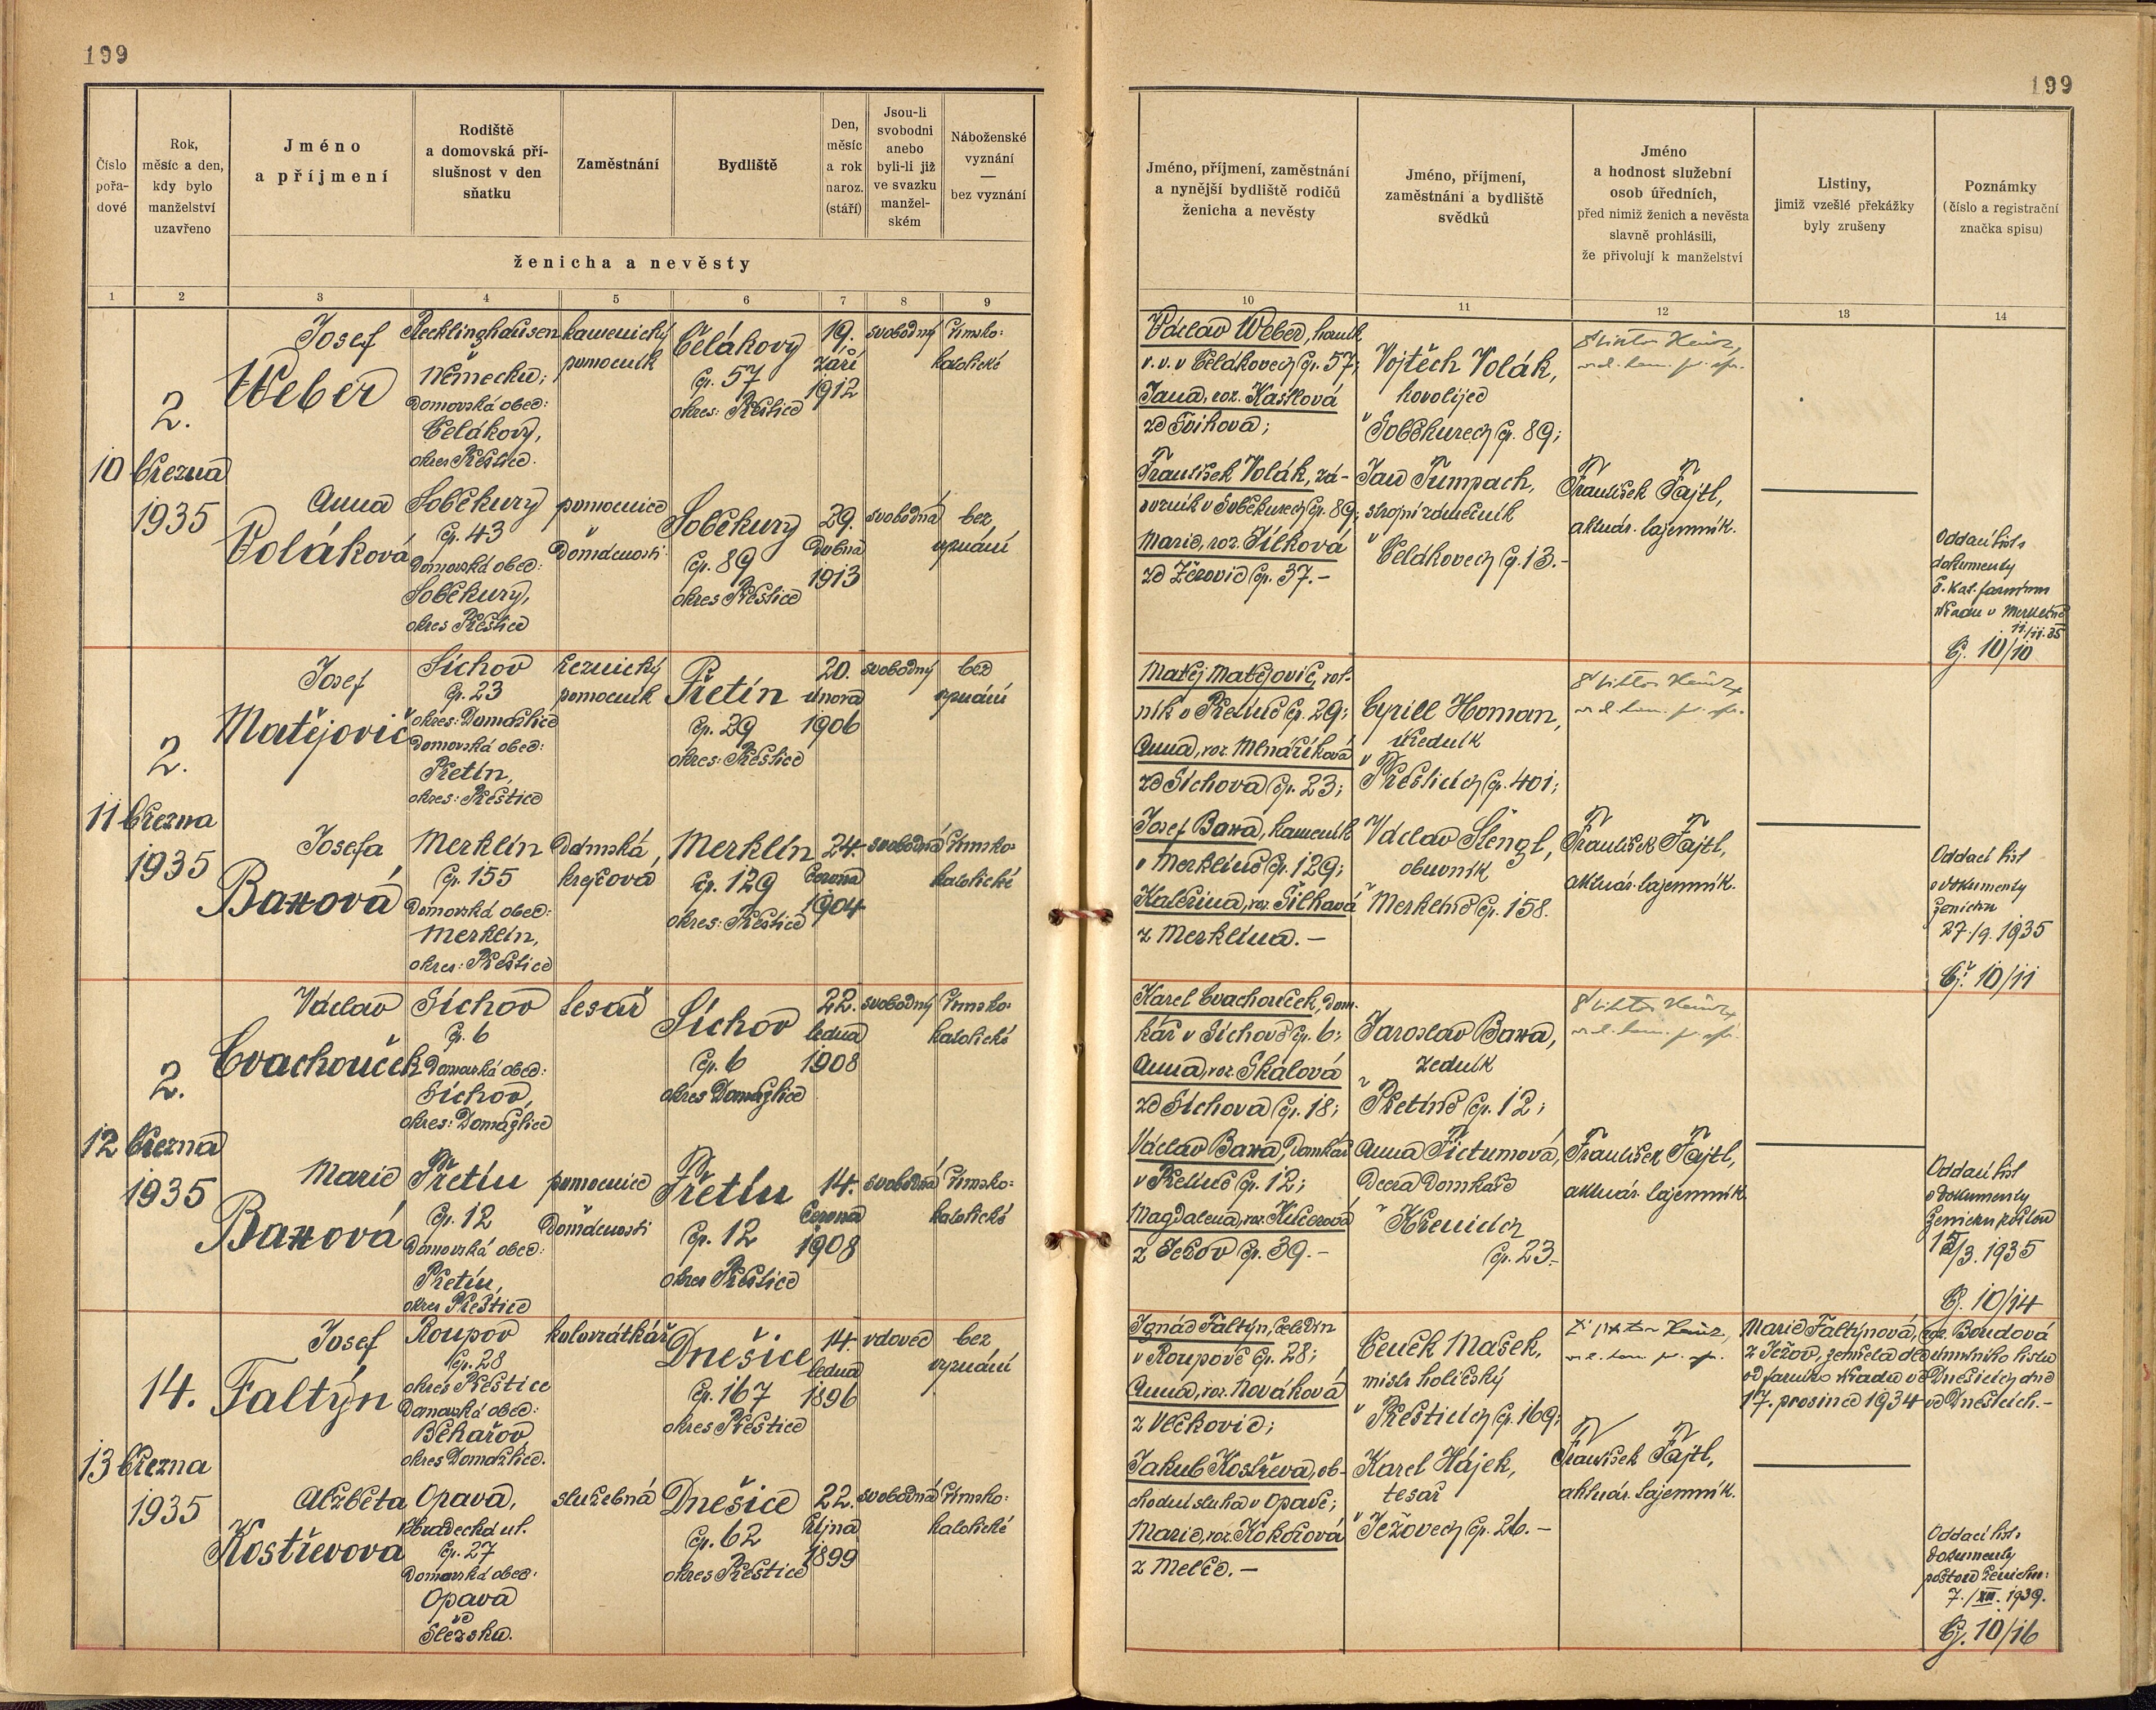 199
199
Číslo pořadové
Rok, měsíc a den, kdy bylo manželství uzavřeno
Jméno a příjmení
Rodiště a domovská příslušnost v den sňatku
Zaměstnání
Bydliště
Den, měsíc a rok naroz. (stáří)
Jsou-li svobodni anebo byli-li již ve svazku manželském
Náboženské vyznání — bez vyznání
ženicha a nevěsty
Jméno, příjmení, zaměstnání a nynější bydliště rodičů ženicha a nevěsty
Jméno, příjmení, zaměstnání a bydliště svědků
Jméno a hodnost služební osob úředních, před nimiž ženich a nevěsta slavně prohlásili, že přivolují k manželství
Listiny, jimiž vzešlé překážky byly zrušeny
Poznámky (číslo a registrační značka spisu)
1 2 3 4 5 6 7 8 9 10 11 12 13 14
10
2.
března
1935
Josef
Weber
Recklinghausen
Německu;
Domovská obec:
Čelákovy,
okres Přeštice.
kamenický
pomocník
Čelákovy
čp. 57
okres: Přeštice
19.
září
1912
svobodný
římsko-
katolické
Anna
Voláková
Soběkury
čp. 43
Domovská obec:
Soběkury,
okres Přeštice
pomocnice
v
domácnosti
Soběkury
čp. 89
okres Přeštice
29.
dubna
1913
svobodná
bez
vyznání
Václav Weber, horník
v. v. v Čelákovech čp. 57;
Jana, roz. Kasíková
ze Svihova;
František Volák, zá-
vozník v Soběkurech čp. 89;
Marie, roz. Sílková
ze Žerovic čp. 37.-
Vojtěch Volák,
kovolijec
v Soběkurech čp. 89;
Jan Tumpach,
strojní zámečník
v Čelákovech čp. 13.-
František Fajtl,
aktuár. tajemník.
Oddací list
dokumenty
ř. kat. farnímu
úřadu v Merklíně
11/11. 35
Čj. 10/10
11
2.
března
1935
Josef
Matějovič
Síchov
čp. 23
okres: Domažlice
Domovská obec:
Přetín,
okres: Přeštice
řeznický
pomocník
Přetín
čp. 29
okres: Přeštice
20.
února
1906
svobodný
bez
vyznání
Josefa
Baxová
Merklín
čp. 155
Domovská obec:
Merklín,
okres: Přeštice
Dámská
krejčová
Merklín
čp. 129
okres: Přeštice
24.
června
1904
svobodná
římsko-
katolické
Matěj Matějovič, rol-
ník v Přetíně čp. 29;
Anna, roz. Mlnáříková
ze Síchova čp. 23;
Josef Baxa, kameník
v Merklíně čp. 129;
Kateřina, roz. Silhavá
z Merklína.-
Cyrill Homan,
úředník
v
Přešticích čp. 401;
Václav Šlengl,
obuvník
v Merklíně čp. 158.
František Fajtl,
aktuár. tajemník.
Oddací list
a dokumenty
ženichu
27./9. 1935
Čj. 10/11
12
2.
března
1935
Václav
Cvachouček
Síchov
čp. 6
Domovská obec:
Síchov,
okres: Domažlice
tesař
Síchov
čp. 6
okres Domažlice
22.
ledna
1908
svobodný
římsko-
katolické
Marie
Baxová
Přetín
čp. 12
Domovská obec:
Přetín,
okres Přeštice
pomocnice
v
domácnosti
Přetín
čp. 12
okres Přeštice
14.
června
1908
svobodná
římsko-
katolické
Karel Cvachouček, dom-
kář v Síchově čp. 6;
Anna, roz. Skalová
ze Síchova čp. 18;
Václav Baxa, domkář
v Přetíně čp. 12;
čp. 39.-
Jaroslav Baxa,
zedník
v Přetíně čp. 12;
Anna Tictumová,
dcera domkáře
v Křenicích
čp. 23.-
František Fajtl,
aktuár. tajemník.
Oddací list
a dokumenty
ženichu poštou
15/3. 1935
Čj. 10/14
13
14.
března
1935
Josef
Faltýn
Roupov
čp. 28
okres Přeštice
Domovská obec:
Běhařov
okres Domažlice.
kolovrátkář
Dnešice
čp. 167
okres Přeštice
14.
ledna
1896
vdovec
bez
vyznání
Alžběta
Kostřevová
Opava,
Hradecká ul.
čp. 27
Domovská obec:
Opava
ve
Slezsku.
služebná
Dnešice
čp. 62
okres Přeštice
22.
října
1899
svobodná
římsko-
katolické
Ignác Faltýn, čeledín
v Roupově čp. 28;
Anna, roz. Nováková
z Vlčkovic;
Jakub Kostřeva, ob-
chodní sluha v Opavě;
Marie, roz. Kokošová
z Melče.-
Čeněk Mašek,
mistr holičský
v Přešticích čp. 169;
Karel Hájek,
tesař
v Ježovech čp. 26.-
František Fajtl,
aktuár. tajemník.
Marie Faltýnová, roz. Boudová
z Ježov, zemřela dle úmrtního listu
od farního úřadu v Dnešicích dne
17. prosince 1934 ve Dnešicích.-
Oddací list
dokumenty
poštou ženichu:
7./XII. 1939.
Čj. 10/16